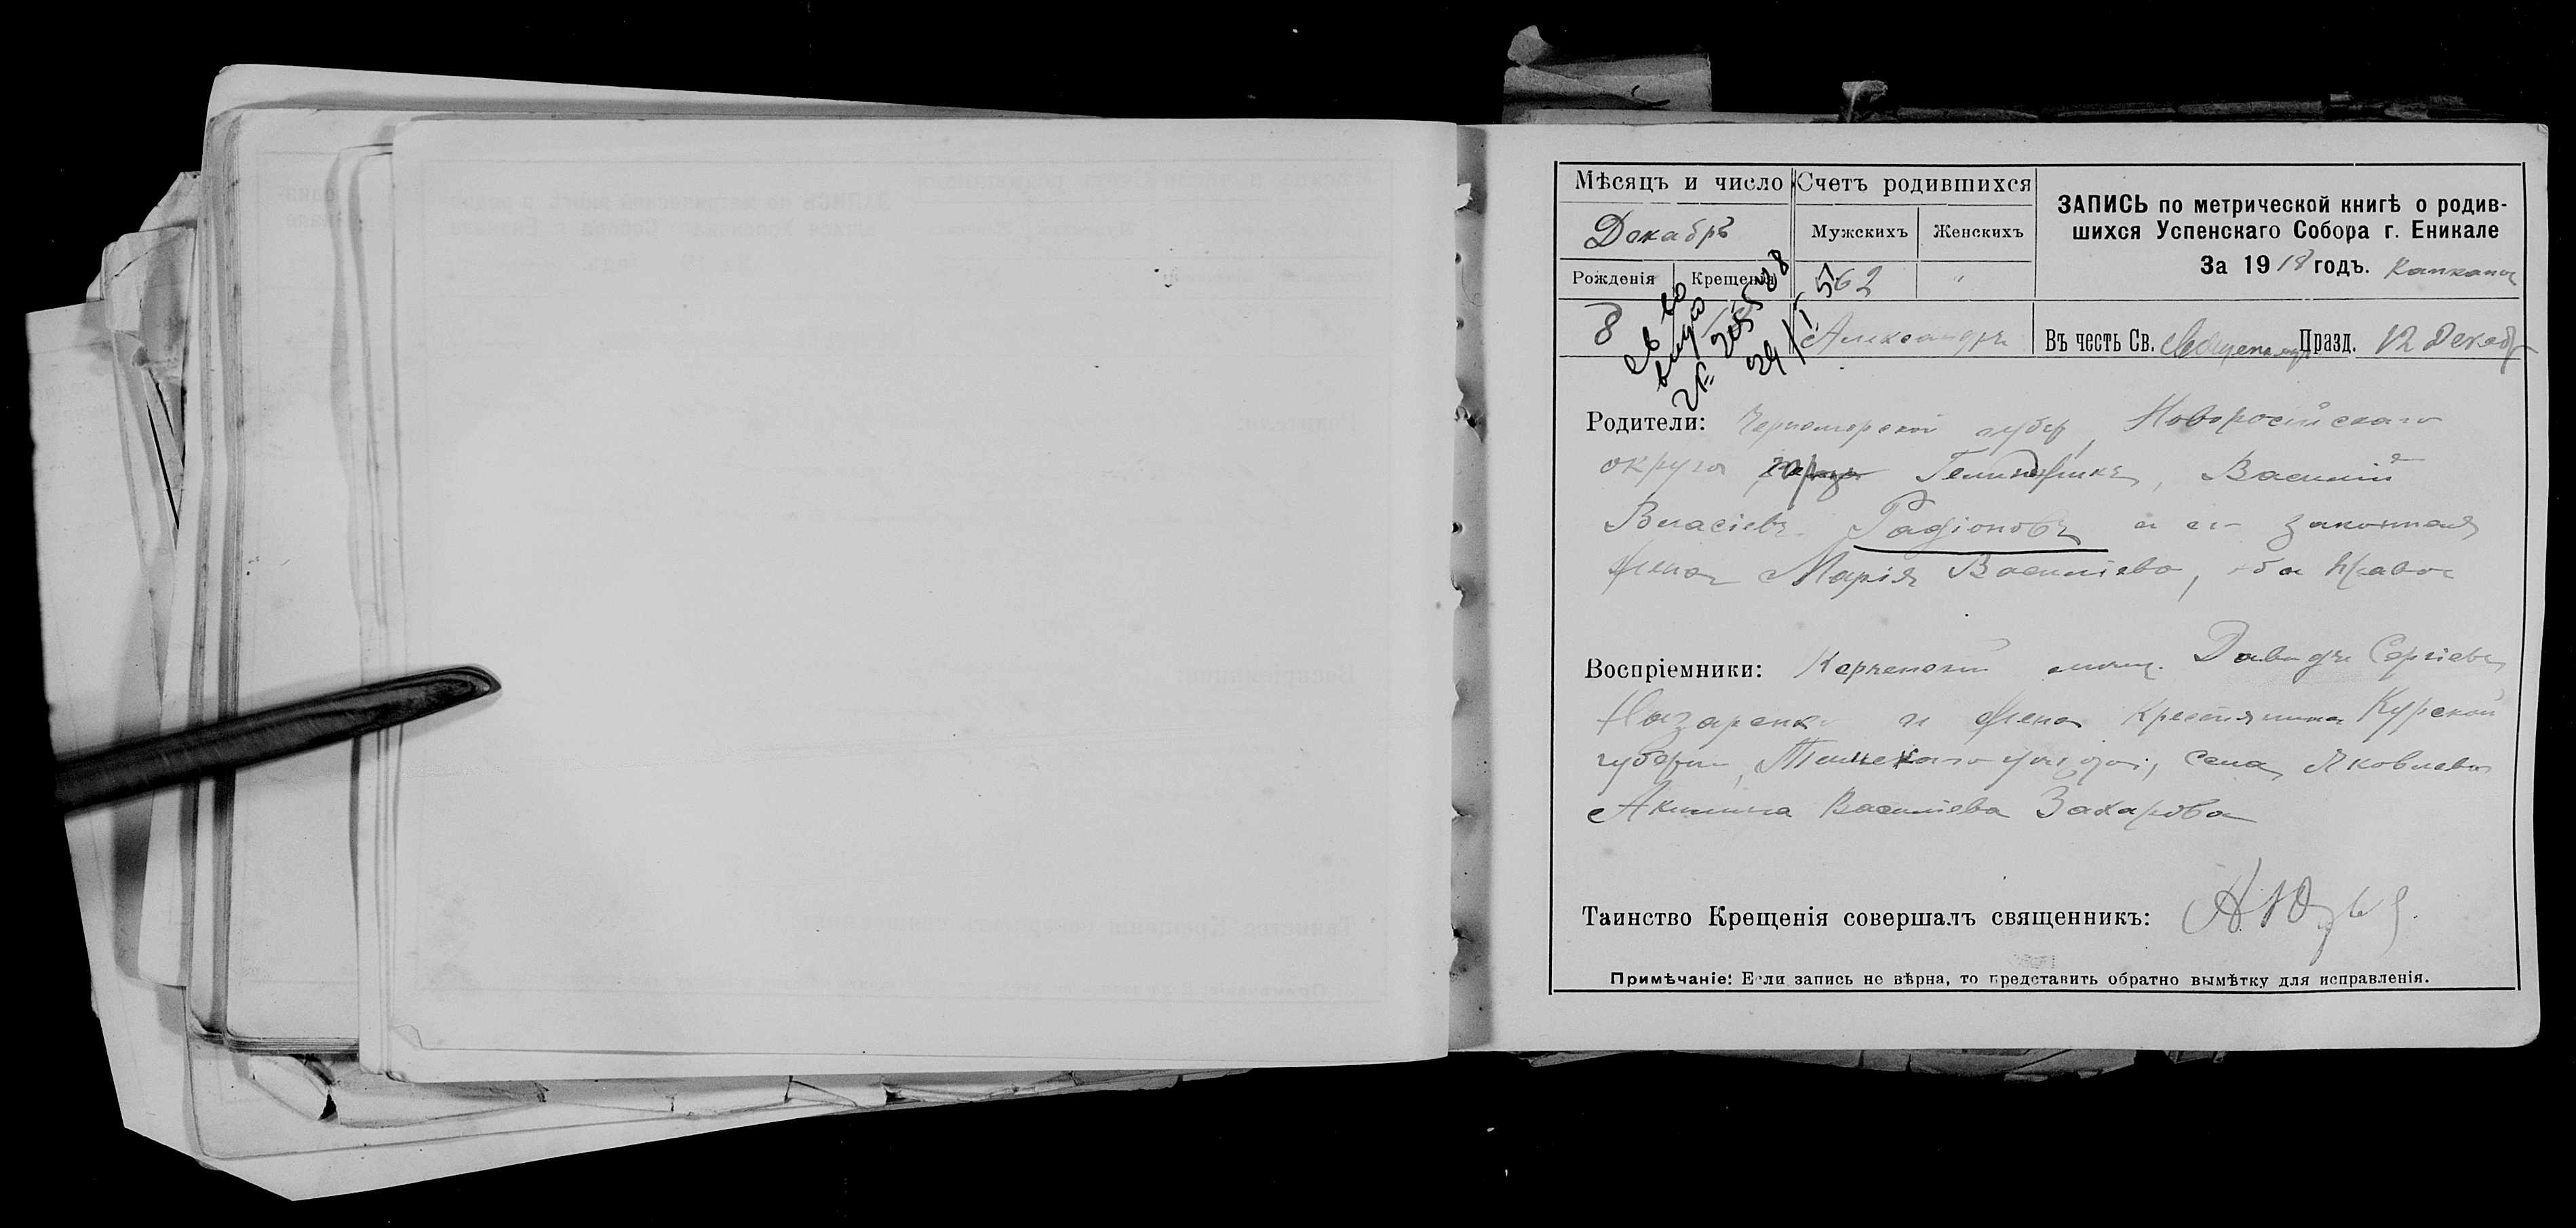 Мѣсяцъ и число
Счетъ родившихся
ЗАПИСЬ по метрической книгѣ о родив-
шихся Успенскаго Собора г. Еникале
За 1918 годъ.
Декабрь
Мужскихъ Женскихъ
Рожденія Крещенія
62 "
8
Александръ
Въ честь Св. Празд. 12 Декаб
Родители: Черноморской губер, Новоросійскаго
округа Геленджикъ, Василій
Власіевъ Радіоновъ и его законная
жена Марія Василіева, оба Правос
Воспріемники: Керченскій мѣщ. Давидъ Сергіевъ
Назаренко и жена крестьянина Курской
губерніи, уѣзда, села Яковлева
Акилина Василіева Захарова
Таинство Крещенія совершалъ священникъ:
Примѣчаніе: Если запись не вѣрна, то представить обратно вымѣтку для исправленія.